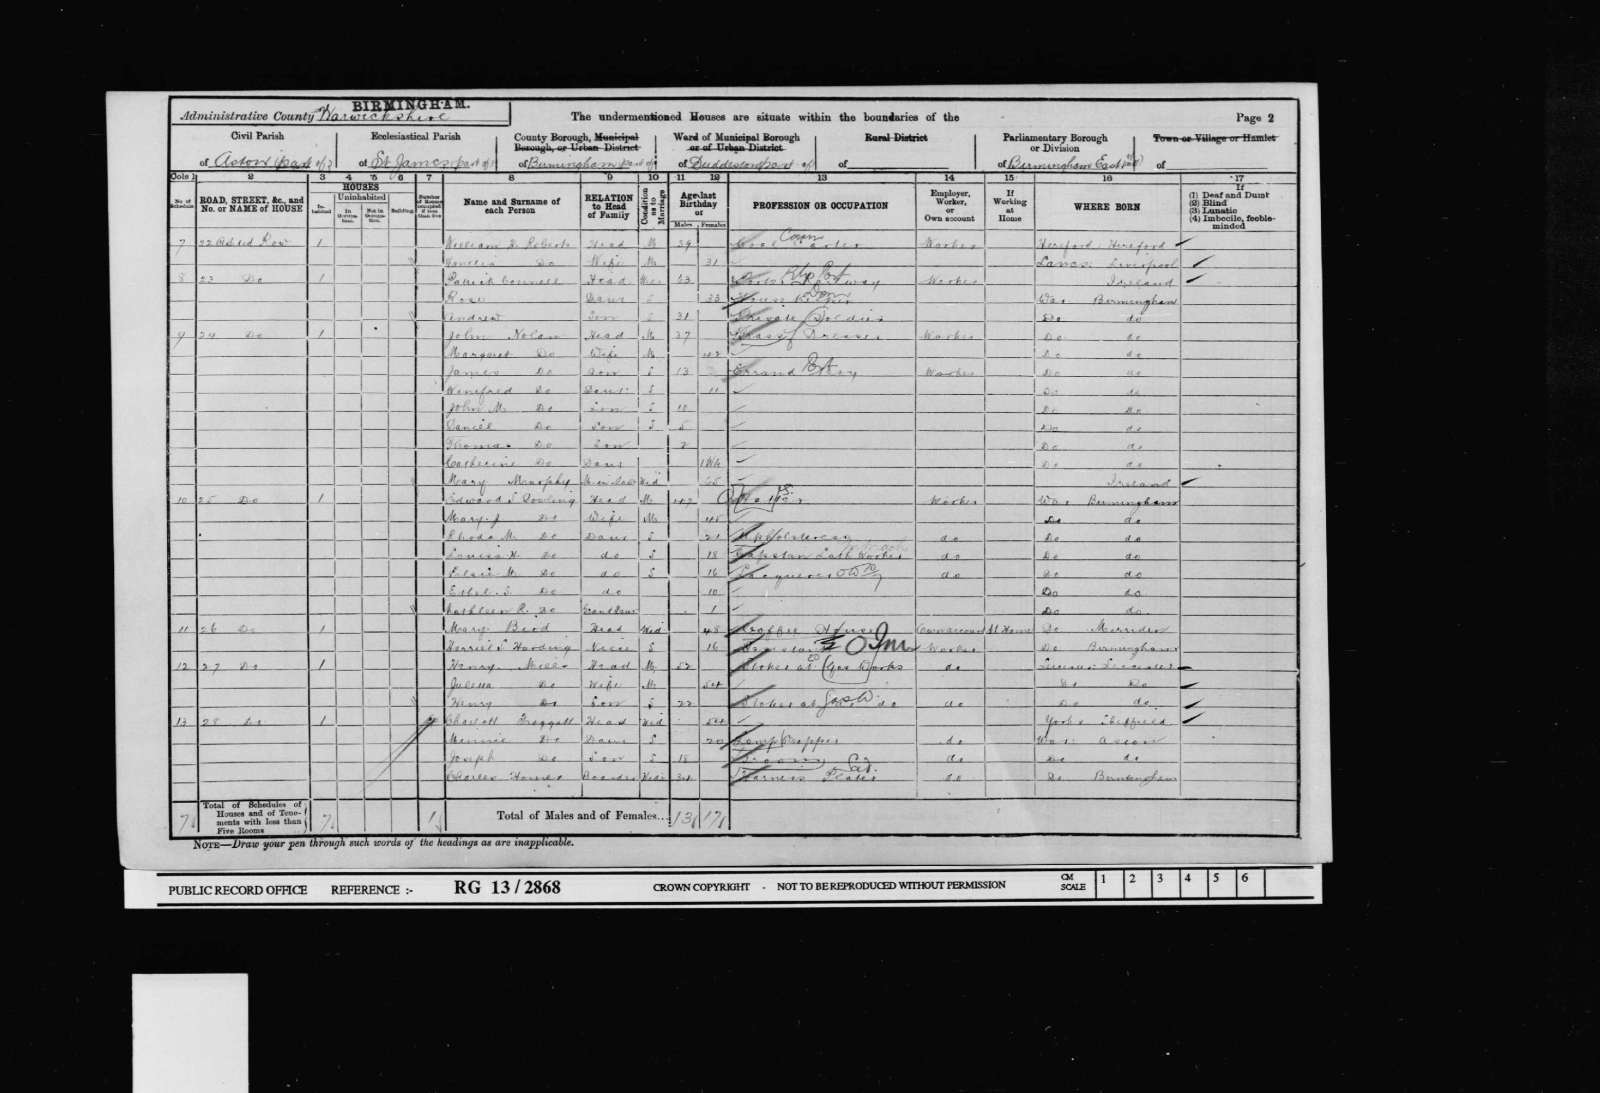 BIRMINGHAM.
Administrative County Warwickshire The undermentioned Houses are situate within the boundaries of the Page 2
Civil Parish Ecclesiastical Parish County Borough, Municipal Borough, or Urban District Ward of Municipal Borough or of Urban District Rural District Parliamentary Borough or Division Town or Village or Hamlet
of Aston (part of) of St James (part of) of Birmingham part of of Duddeston part of of of Birmingham East (part of) of
Cols 1 2 3 4 5 6 7 8 9 10 11 12 13 14 15 16 17
No. of Schedule ROAD, STREET, &c., and No. or NAME of HOUSE HOUSES Inhabited Uninhabited In Occupation. Not in Occupation. Building Number of Rooms occupied if less than five Name and Surname of each Person RELATION to Head of Family Condition as to Marriage Age last Birthday of Males Females PROFESSION OR OCCUPATION Employer, Worker, or Own account If Working at Home WHERE BORN If (1) Deaf and Dumb (2) Blind (3) Lunatic (4) Imbecile, feeble-minded
7 22 Ashted Row 1 William Roberts Head M 39 Worker Hereford Hereford
Do Wife M 31 Lancs: Liverpool
8 23 Do 1 Patrick Head 53 Worker Ireland
Rose Daur S 33 War Birmingham
Andrew Son S 31 Private Soldier Do do
9 24 Do 1 John Nolan Head M 37 Brass Dresser Worker Do do
Margaret Do Wife M 42 Do do
James Do Son S 13 Errand Boy Worker Do do
Winefred Do Daur S 11 Do do
John M. Do Son S 10 Do Do
Daniel Do Son S 5 Do do
Thomas Do Son 2 Do do
Catherine Do Daur Do do
Mary Murphy Wid 65 Ireland
10 25 Do 1 Edward Head M 47 Worker War Birmingham
Mary J Do Wife M 45 Do do
Rhoda M. Do Daur S 21 do Do do
Louisa H. Do do S 18 Capstan Lathe Worker do Do do
Elsie M. Do do S 16 Lacquerer do Do do
Ethel S. Do do 10 Do do
Kathleen R. Do 1 Do do
11 26 Do 1 Mary Bird Head Wid 48 Coffee House Own account At Home Do Merriden
Harriet Harding Niece S 16 Worker Do Birmingham
12 27 Do 1 Henry Mills Head M 52 Stoker at Gas Works do Leicester
Do Wife M 54 Do Do
Henry Do Son S 22 Stoker at do do Do do
13 28 Do 1 Froggatt Head Wid 54 Yorks Sheffield
Minnie Do Daur S 20 do War: Aston
Joseph Do Son S 18 Groom do Do do
Charles Homer Boarder Harness Plater do Do Birmingham
7 Total of Schedules of Houses and of Tenements with less than Five Rooms 7 1 Total of Males and of Females... 13 17
NOTE—Draw your pen through such words of the headings as are inapplicable.
PUBLIC RECORD OFFICE REFERENCE :- RG 13/2868 CROWN COPYRIGHT - NOT TO BE REPRODUCED WITHOUT PERMISSION CM SCALE 1 2 3 4 5 6